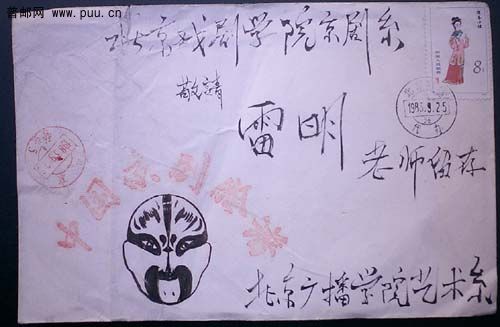 普邮网 www.puu.cn
北京戏剧学院京剧系
8
敬請
雷明
老师留存
中国京剧脸谱
北京广播学院艺术系